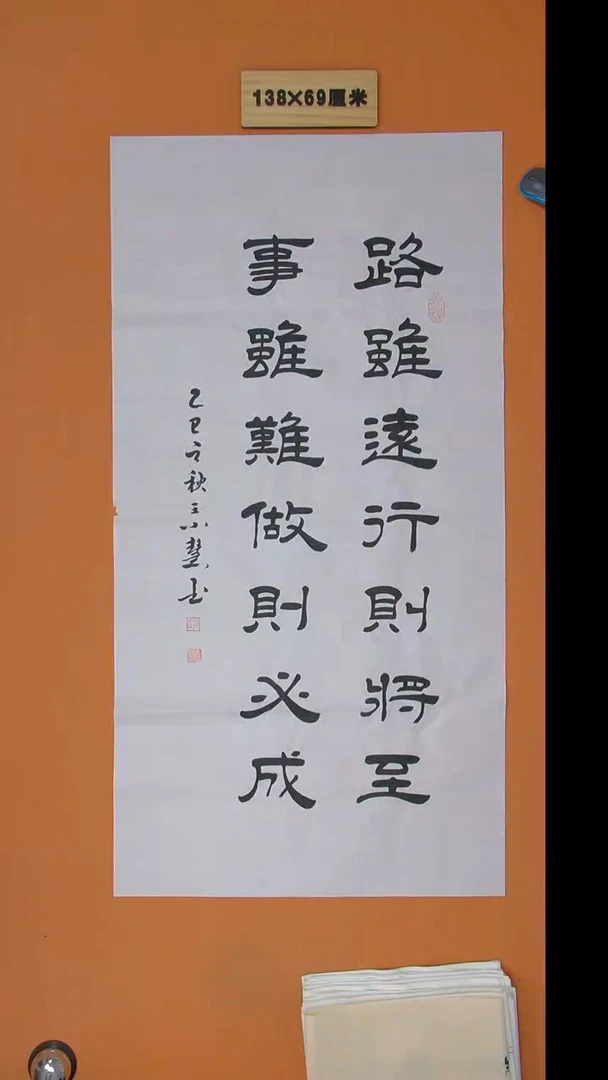 138×69厘米
路雖遠行則將至
事雖難做則必成
乙巳之秋